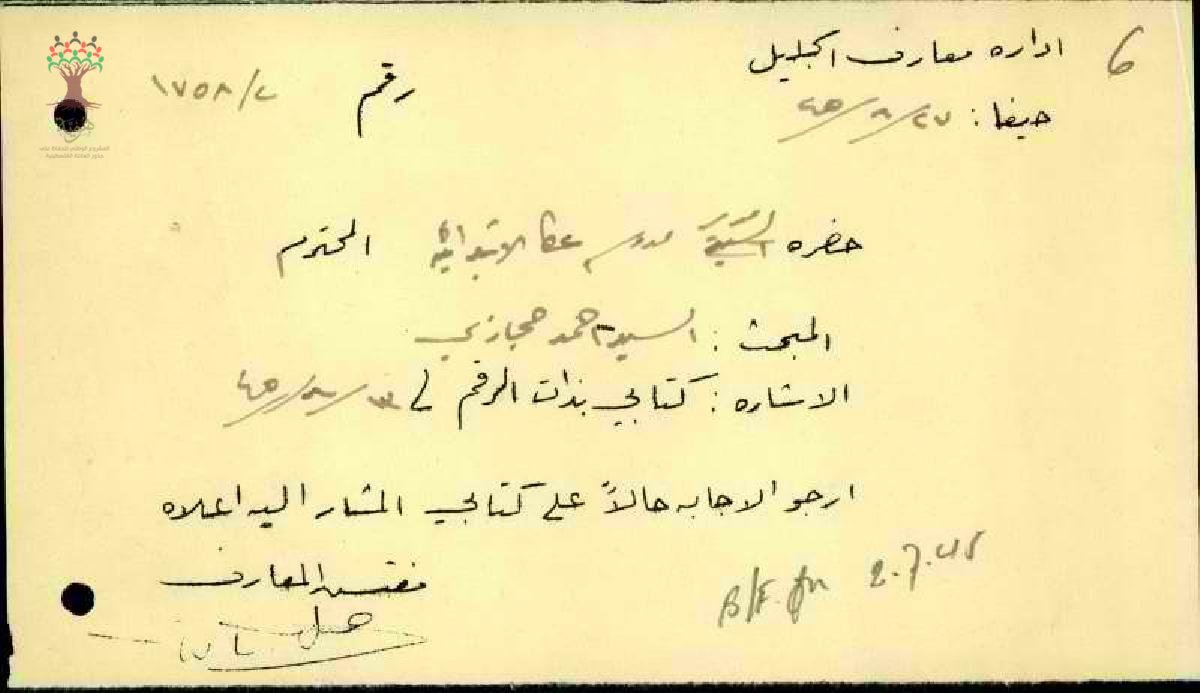 6
اداره معارف الجليل
رقم ١٧٥٨/٢
حيفا : ٢٧/٨/٤٥
حضره السيد مدير عكا الابتدائيه المحترم
المبحث : السيد احمد حجازي
الاشاره : كتابي بذات الرقم في /٤٥
ارجو الاجابه حالاً على كتابي المشار اليه اعلاه
مفتش المعارف
B/F. on 2.7.45